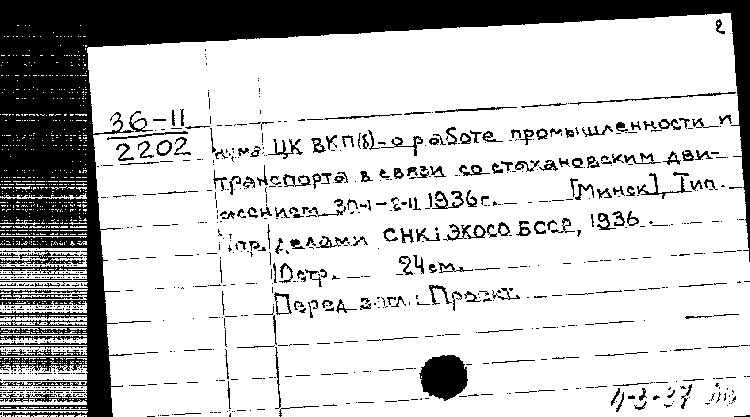 2
36-11
2202
нума ЦК ВКП(б)-о работе промышленности и
транспорта в связи со стахановским дви-
жением 30-I-2-II 1936г. [Минск], Тип.
Упр. делами СНК и ЭКОСО БССР, 1936.
10стр. 24см.
Перед загл.: Проект.
4-3-37